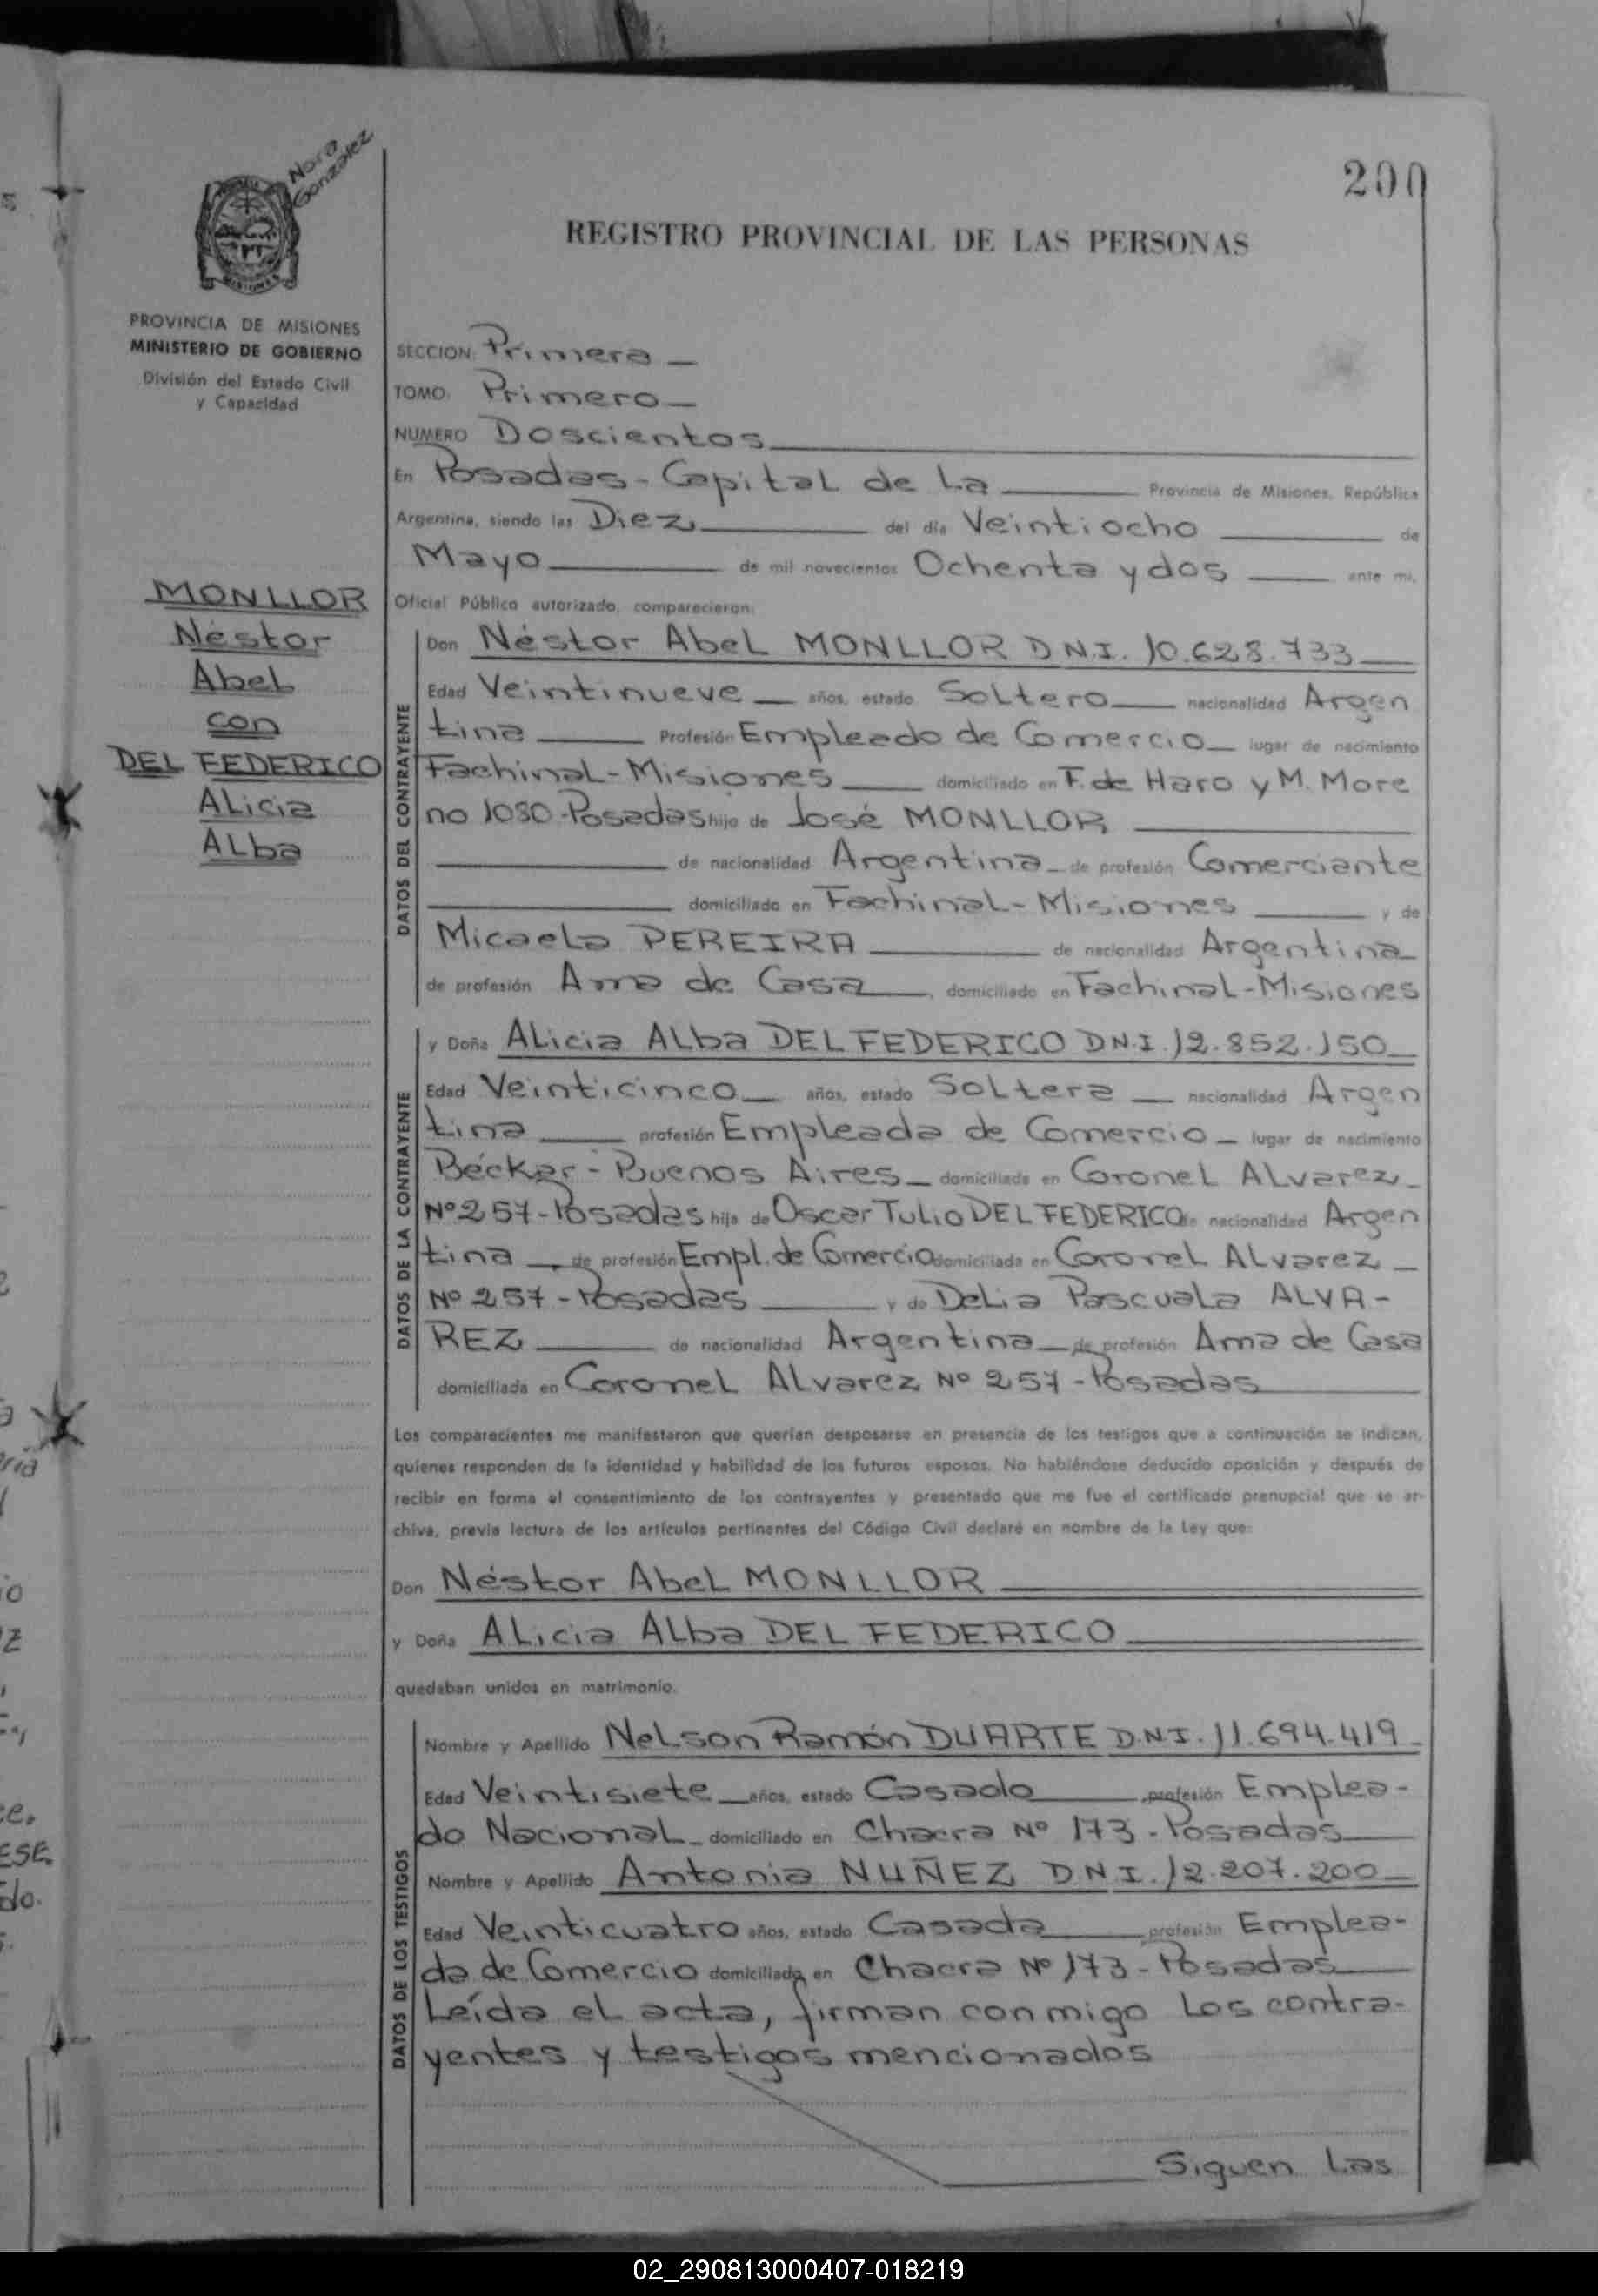 Nora
González
200
REGISTRO PROVINCIAL DE LAS PERSONAS
MISIONES
PROVINCIA DE MISIONES
MINISTERIO DE GOBIERNO
División del Estado Civil
y Capacidad
SECCION: Primera —
TOMO: Primero —
NUMERO Doscientos
En Posadas - Capital de La Provincia de Misiones, República
Argentina, siendo las Diez del día Veintiocho de
Mayo de mil novecientos Ochenta y dos ante mí,
Oficial Público autorizado, comparecieron:
MONLLOR
Néstor
Abel
con
DEL FEDERICO
Alicia
Alba
DATOS DEL CONTRAYENTE
Don Néstor Abel MONLLOR D.N.I. 10.628.733
Edad Veintinueve años, estado Soltero nacionalidad Argen
tina Profesión Empleado de Comercio lugar de nacimiento
Fachinal - Misiones domiciliado en F. de Haro y M. More
no 1080 - Posadas hijo de José MONLLOR
de nacionalidad Argentina de profesión Comerciante
domiciliado en Fachinal - Misiones y de
Micaela PEREIRA de nacionalidad Argentina
de profesión Ama de Casa, domiciliado en Fachinal - Misiones
DATOS DE LA CONTRAYENTE
y Doña Alicia Alba DEL FEDERICO D.N.I. 12.852.150
Edad Veinticinco años, estado Soltera nacionalidad Argen
tina profesión Empleada de Comercio lugar de nacimiento
Bécker - Buenos Aires domiciliada en Coronel Alvarez
Nº 257 - Posadas hija de Oscar Tulio DEL FEDERICO de nacionalidad Argen
tina, de profesión Empl. de Comercio domiciliada en Coronel Alvarez
Nº 257 - Posadas y de Delia Pascuala ALVA-
REZ de nacionalidad Argentina de profesión Ama de Casa
domiciliada en Coronel Alvarez Nº 257 - Posadas
Los comparecientes me manifestaron que querían desposarse en presencia de los testigos que a continuación se indican,
quienes responden de la identidad y habilidad de los futuros esposos. No habiéndose deducido oposición y después de
recibir en forma el consentimiento de los contrayentes y presentado que me fue el certificado prenupcial que se ar-
chiva, previa lectura de los artículos pertinentes del Código Civil declaré en nombre de la Ley que:
Don Néstor Abel MONLLOR
y Doña Alicia Alba DEL FEDERICO
quedaban unidos en matrimonio.
DATOS DE LOS TESTIGOS
Nombre y Apellido Nelson Ramón DUARTE D.N.I. 11.694.419
Edad Veintisiete años, estado Casado, profesión Emplea-
do Nacional domiciliado en Chacra Nº 173 - Posadas
Nombre y Apellido Antonia NUÑEZ D.N.I. 12.207.200
Edad Veinticuatro años, estado Casada, profesión Emplea-
da de Comercio domiciliada en Chacra Nº 173 - Posadas
Leída el acta, firman conmigo los contra-
yentes y testigos mencionados
Siguen Las
02_290813000407-018219